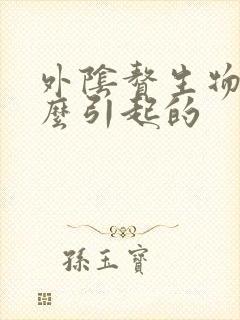 外陰贅生物
麼引起的
孫玉寶